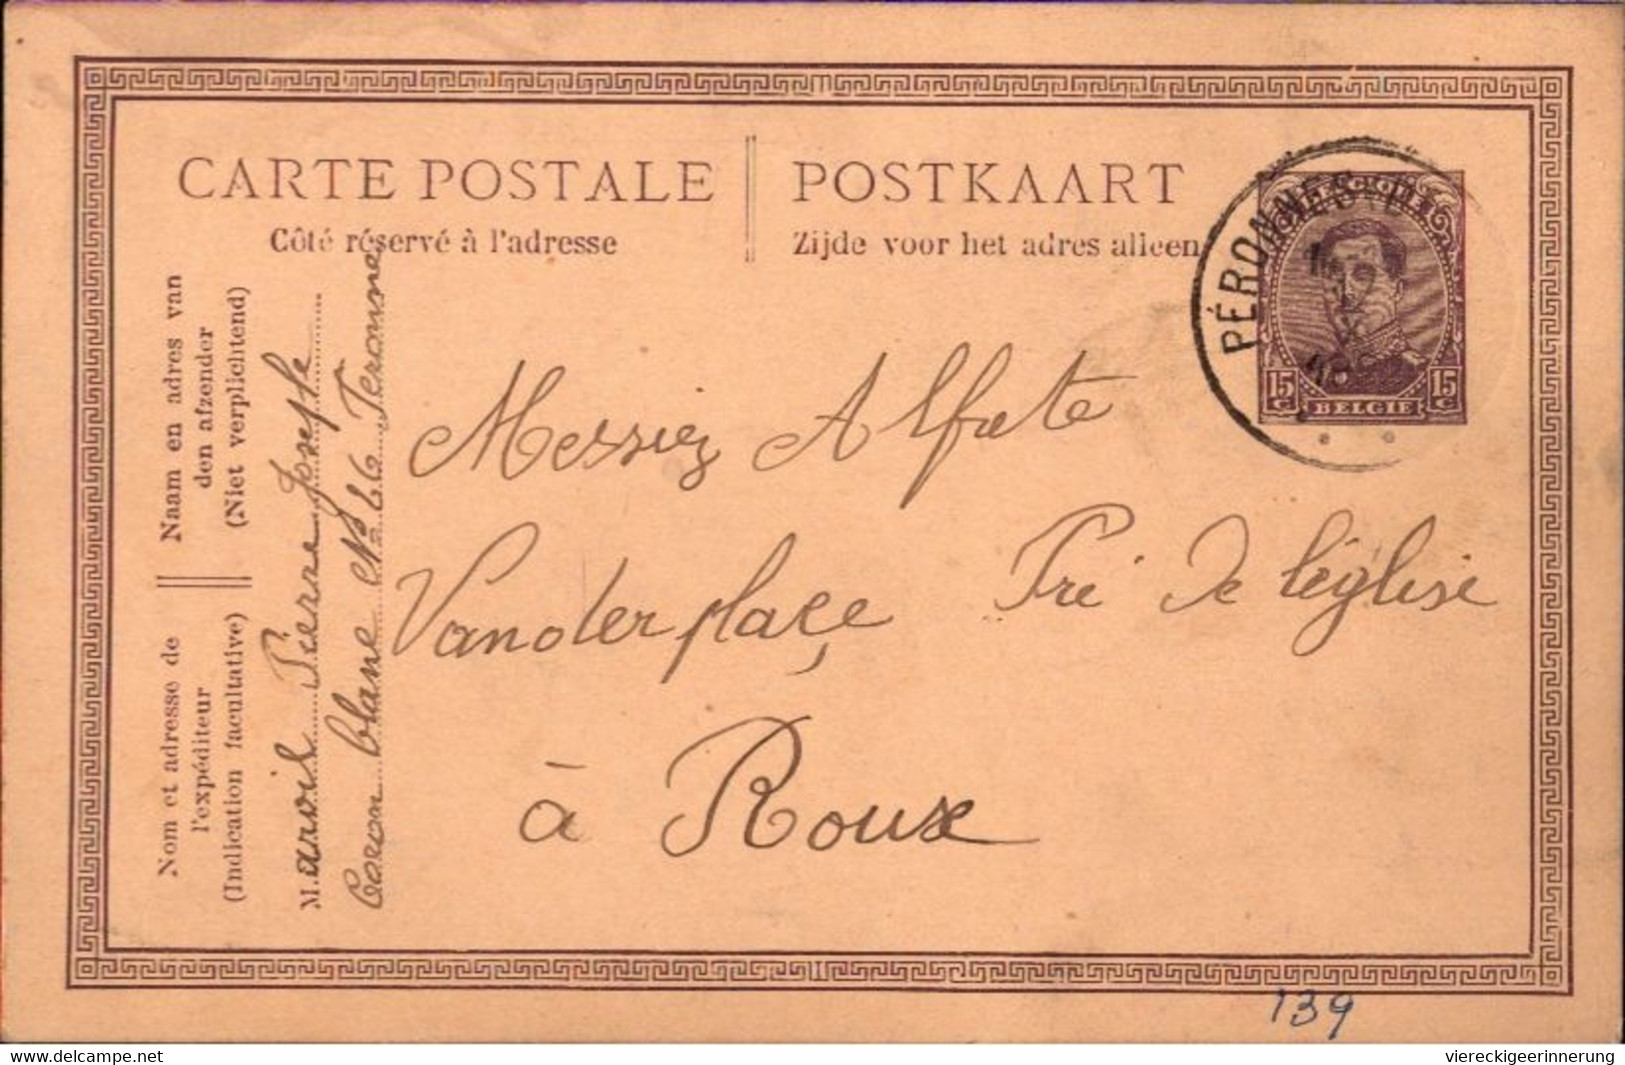 CARTE POSTALE
Côté réservé à l'adresse
POSTKAART
Zijde voor het adres alleen
PÉRONNES
15 C
BELGIE
15 C
Naam en adres van
den afzender
(Niet verplichtend)
Nom et adresse de
l'expéditeur
(Indication facultative)
M. Pierre Joseph
Coron blanc
Messiez Alfrete
Vanderplaçe Pré de l'église
à Roux
139
delcampe.net
viereckigeerinnerung